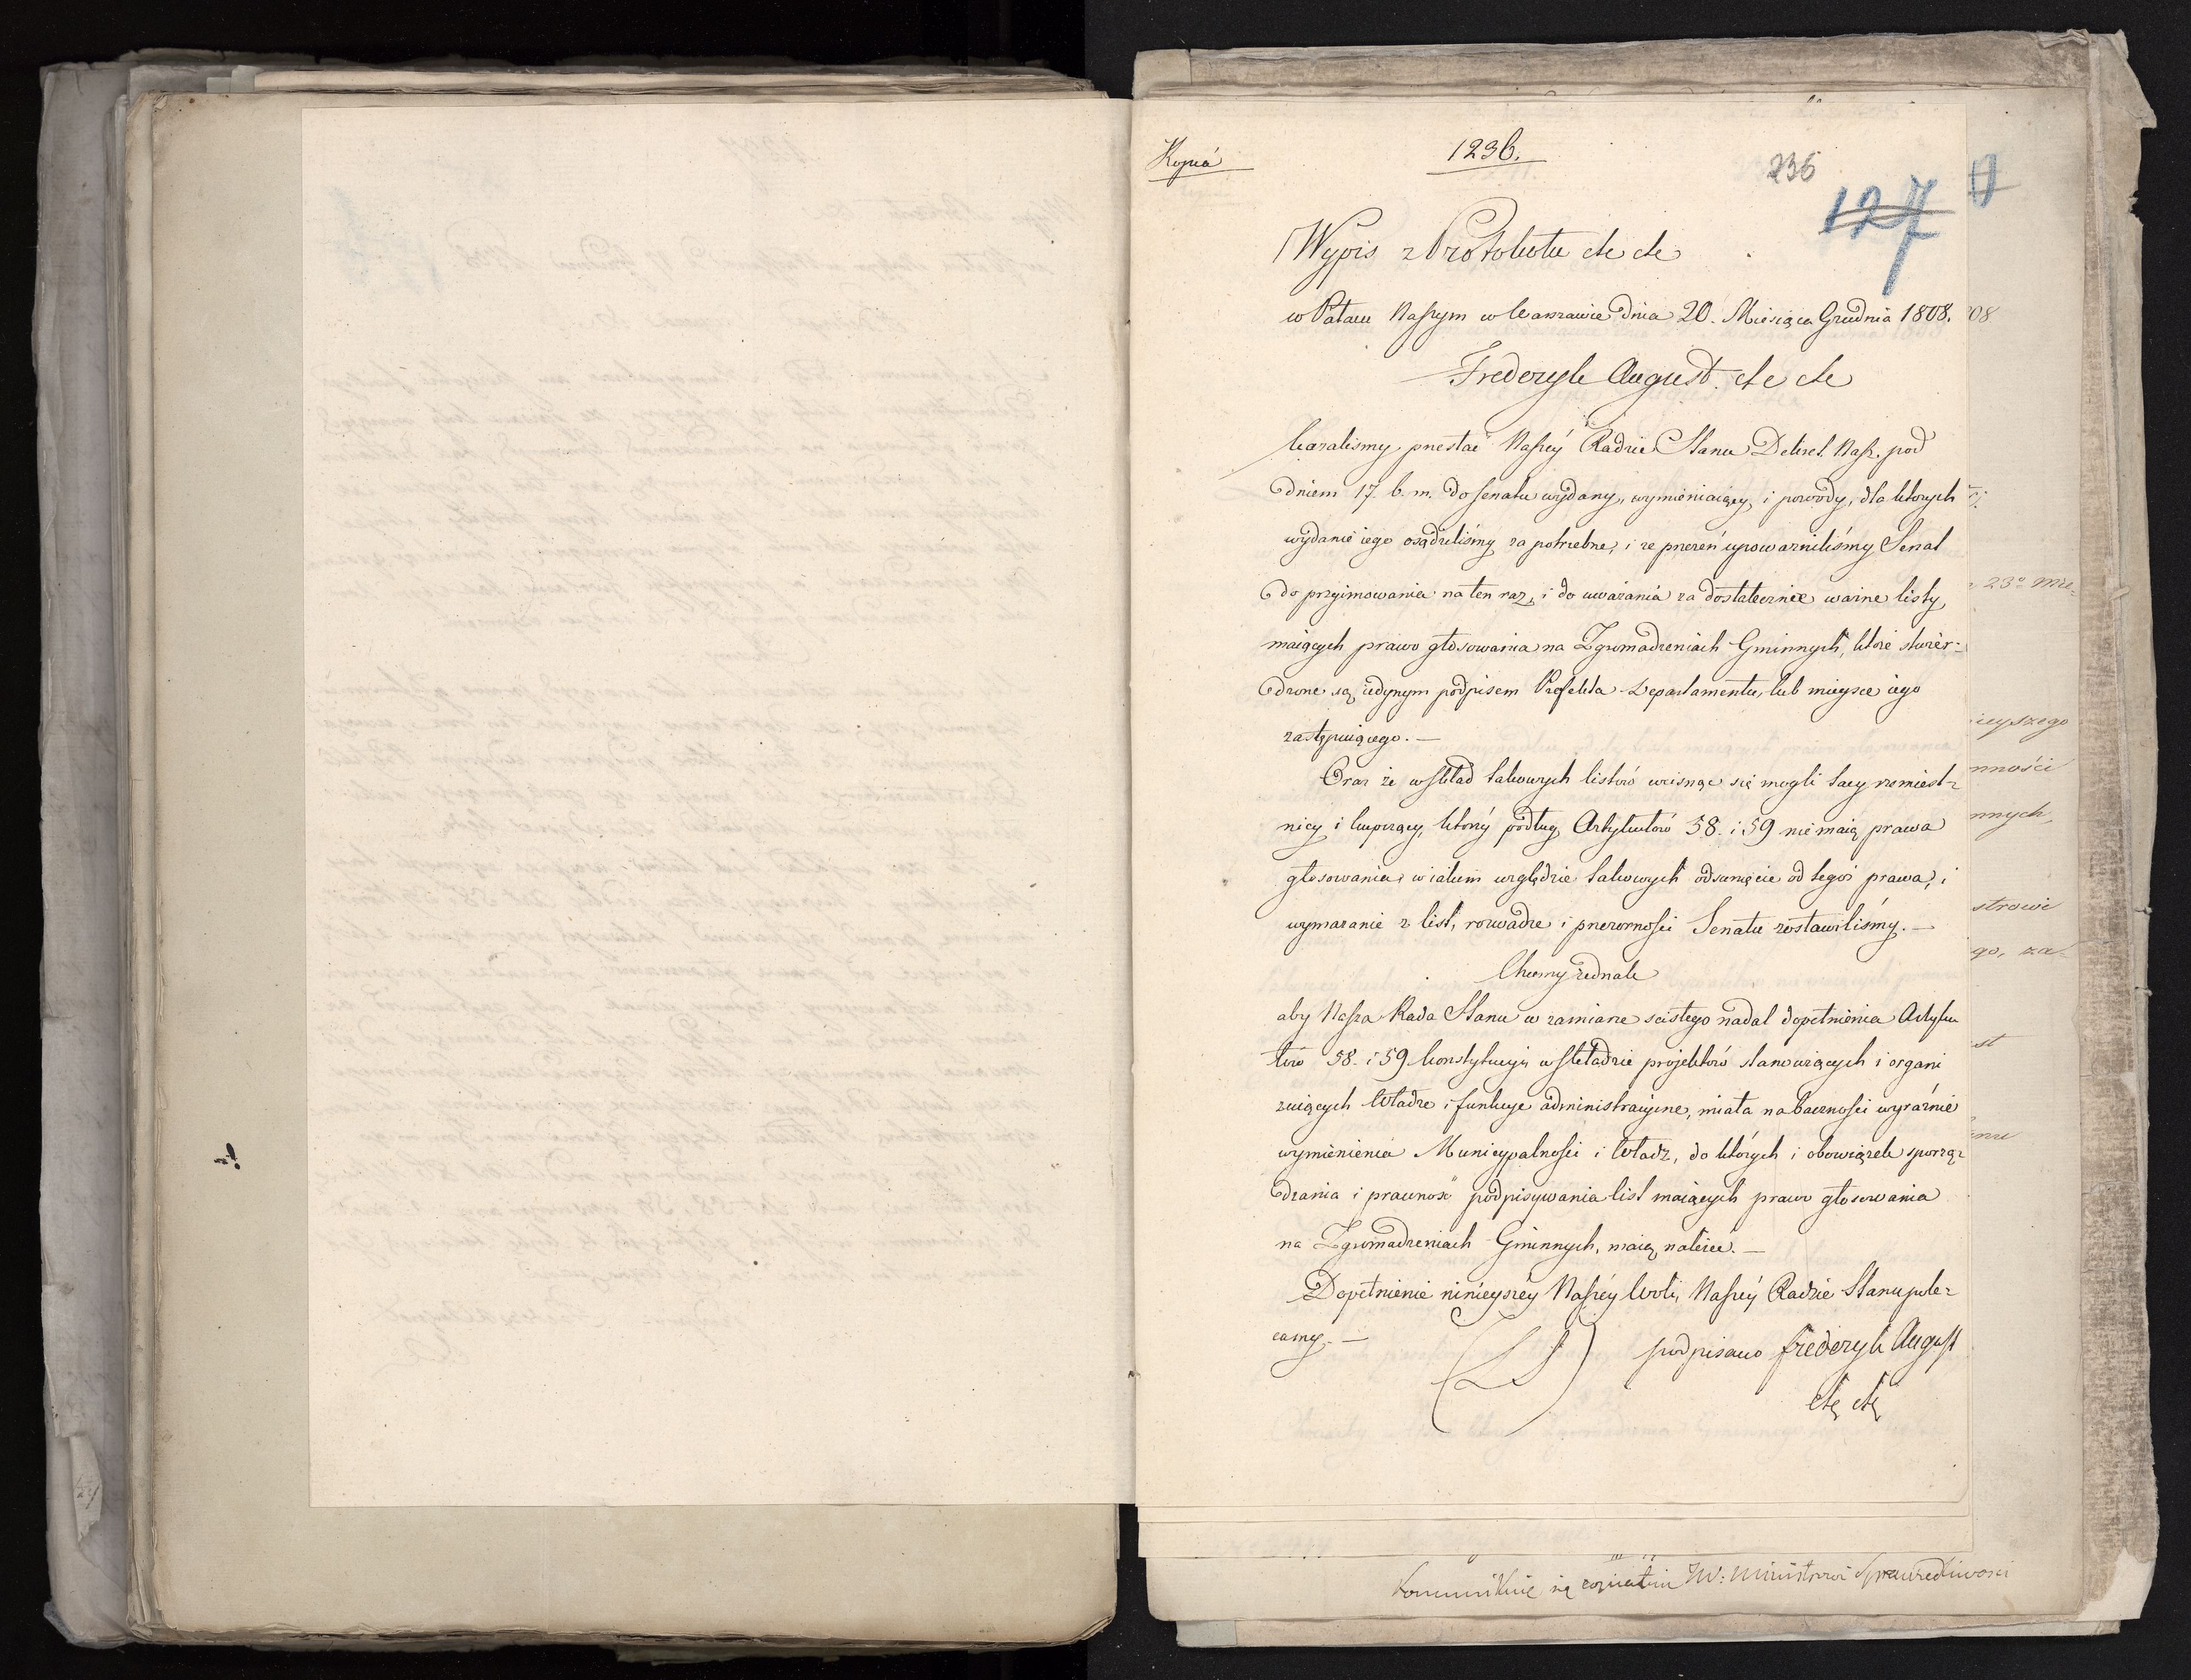 Kopia
1236.
236
127
Wypis z Protokułu etc etc
w Pałacu Naszym w Warszawie dnia 20. Miesiąca Grudnia 1808.
Frederyk August. etc etc
Kazalismy przesłać Naszey Radzie Stanu Dekret Nasz. pod
dniem 17. b. m. do Senatu wydany, wymieniaiący i powody, dla ktorych
wydanie iego osądziliśmy za potrzebne, i że przezeń upoważniliśmy Senat
do przyimowania na ten raz, i do uważania za dostatecznie ważne listy,
maiących prawo głosowania na Zgromadzeniach Gminnych, które stwier-
dzone są iedynym podpisem Prefekta Departamentu, lub mieysce iego
zastępuiącego. —
Oraz że w skład takowych listów wcisnąc się mogli tacy rzemieśl-
nicy i kupczący, którzy podług Artykułów 58. i 59 nie maią prawa
głosowania, w iakim względzie takowych odsunięcie od tegoż prawa, i
wymazanie z list, rozwadze i przezorności Senatu zostawiliśmy. —
Chcemy iednak
aby Nasza Rada Stanu w zamiarze scisłego nadal dopełnienia Artyku
łów 58. i 59 Konstytucyi w składzie projektów stanowiących i organi
zuiących Władze i funkcye administracyine, miała na baczności wyraźnie
wymienienia Municypalności i Władz, do których i obowiązek sporzą-
dzania i prawność podpisywania list maiących prawo głosowania
na Zgromadzeniach Gminnych, maią należeć. —
Dopełnienie ninieyszey Naszey Woli, Naszey Radzie Stanu pole-
camy. —
(LS) podpisano Frederyk August
etc etc
08
23o Mie-
ieyszego
nności
nnych,
strowi
go, za-
st
Kommunikuie się Ministrowi Sprawiedliwosci